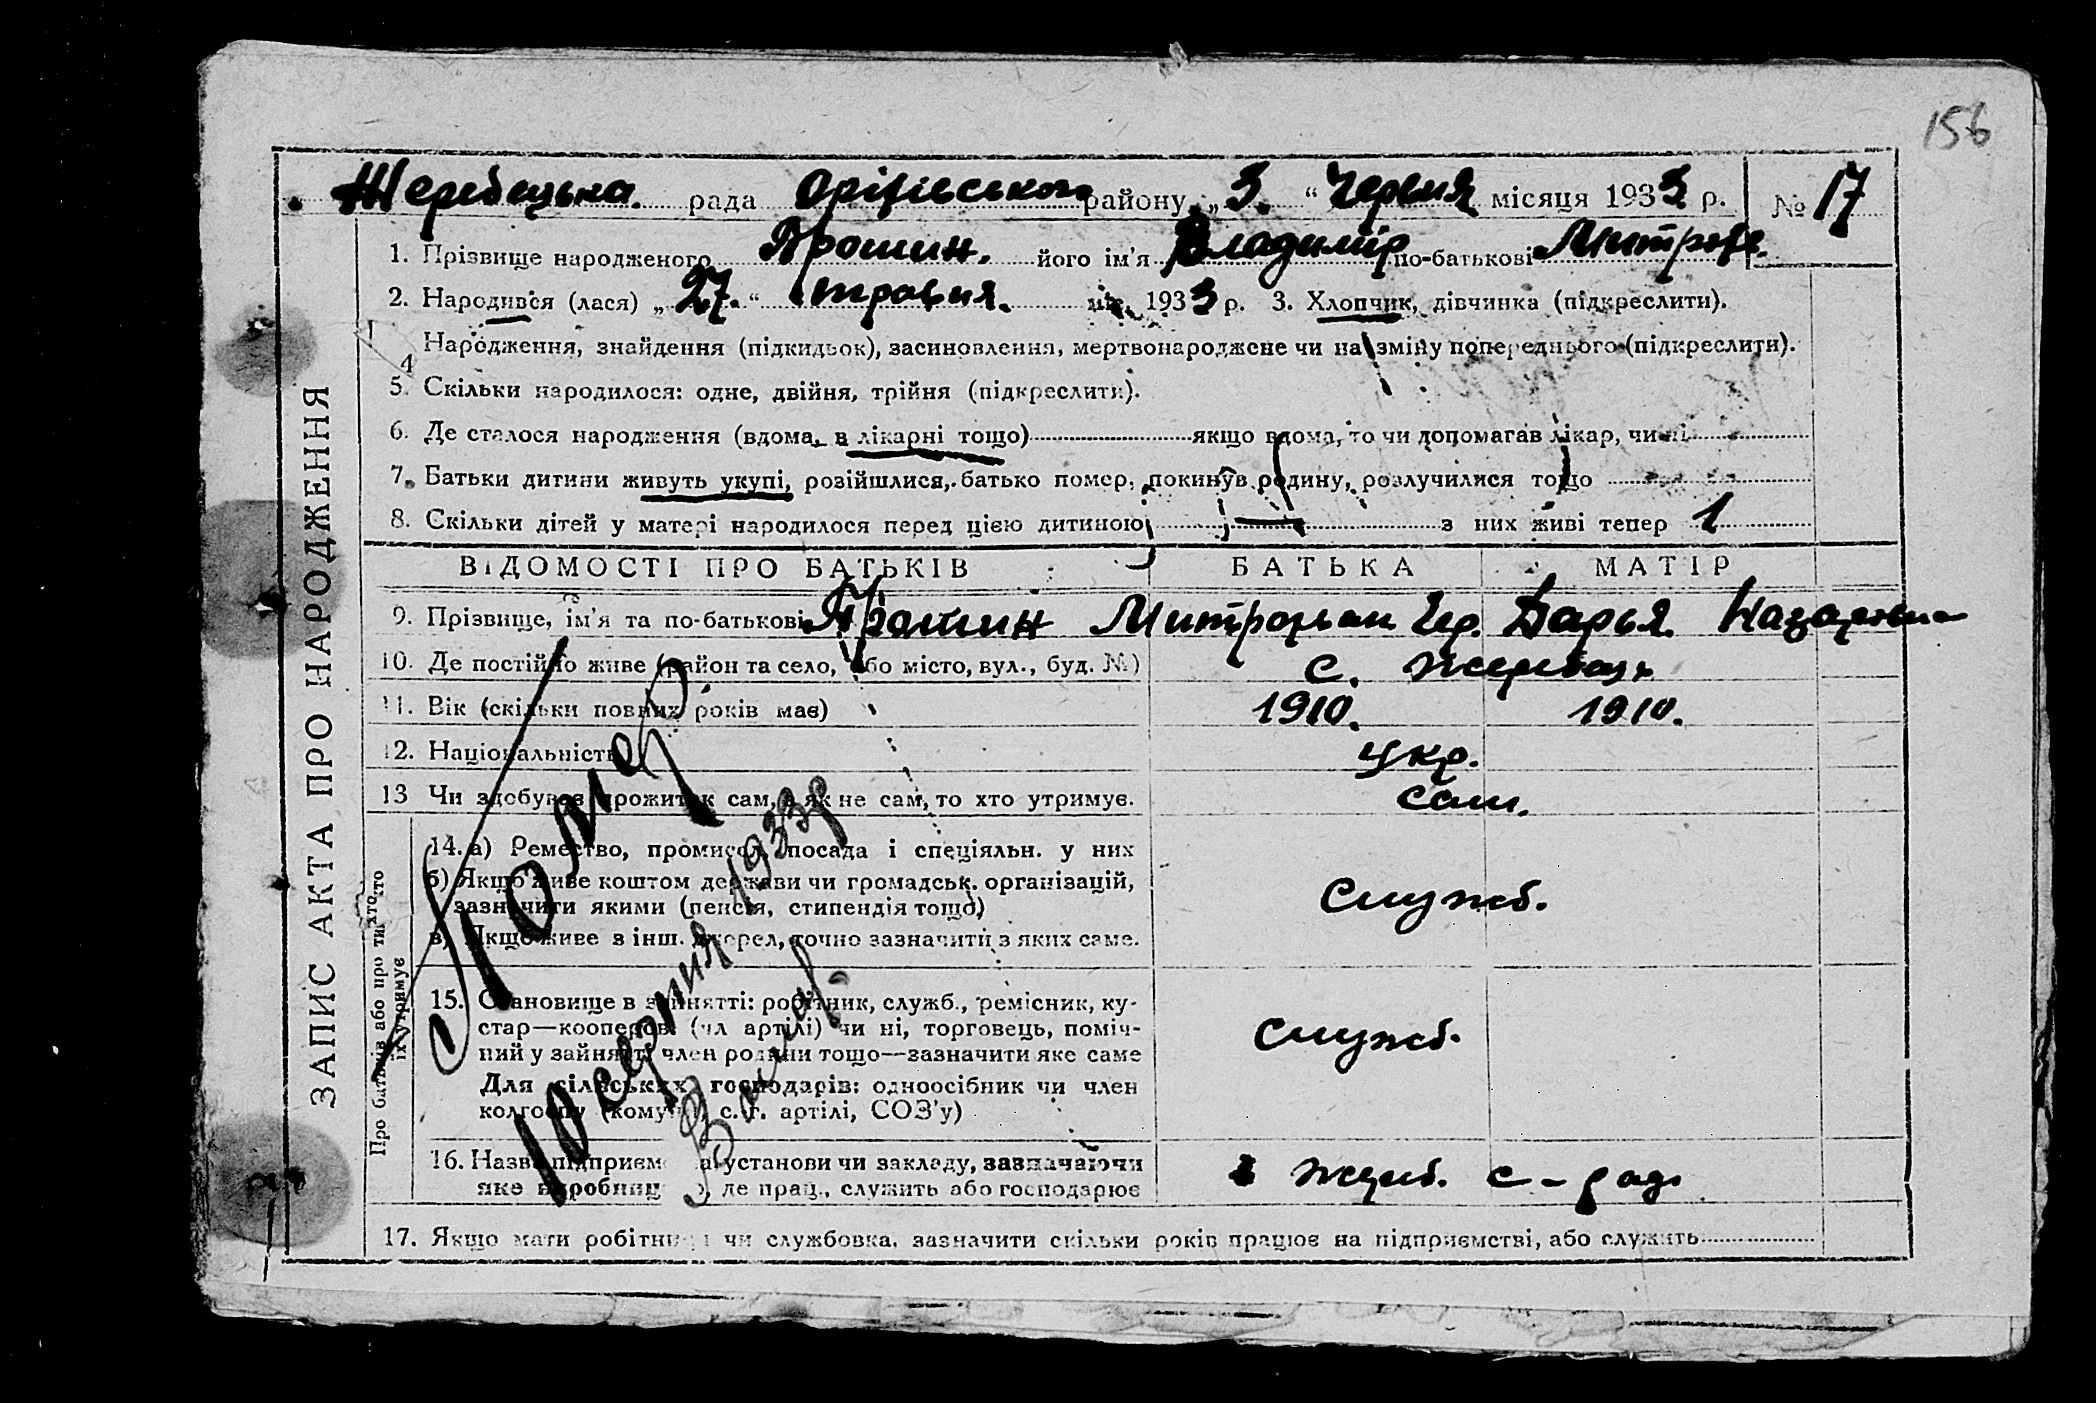 156
Жеребецька рада Оріхівського району „3.“ Червня місяця 1933 р. № 17
1. Прізвище народженого Ярошин. його ім'я Владимір по-батькові Митроф.
2. Народився (лася) „27.“ травня. міс. 1933 р. 3. Хлопчик, дівчинка (підкреслити).
4 Народження, знайдення (підкидьок), засиновлення, мертвонароджене чи на зміну попереднього (підкреслити).
5. Скільки народилося: одне, двійня, трійня (підкреслити).
6. Де сталося народження (вдома, в лікарні тощо) якщо вдома, то чи допомагав лікар, чи ні
7. Батьки дитини живуть укупі, розійшлися, батько помер, покинув родину, розлучилися тощо
8. Скільки дітей у матері народилося перед цією дитиною — з них живі тепер 1
ВІДОМОСТІ ПРО БАТЬКІВ БАТЬКА МАТІР
9. Прізвище, ім'я та по-батькові Ярошин Митрофан Гр. Дарья Назаровна
10. Де постійно живе (район та село, або місто, вул., буд. №) с. Жеребець
11. Вік (скільки повних років має) 1910. 1910.
12. Національність укр.
13 Чи здобував прожиток сам, а як не сам, то хто утримує. сам.
14. а) Ремество, промисел, посада і спеціяльн. у них
б) Якщо живе коштом держави чи громадськ. організацій,
зазначити якими (пенсія, стипендія тощо) служб.
в) Якщо живе з інш. джерел, точно зазначити з яких саме.
15. Становище в зайнятті: робітник, служб., ремісник, ку-
стар—кооперов. (чл артілі) чи ні, торговець, поміч-
ний у зайнятті член родини тощо—зазначити яке саме служб.
Для сільських господарів: одноосібник чи член
колгоспу (комуни, с.-г. артілі, СОЗ'у)
16. Назва підприємства установи чи закладу, зазначаючи
яке виробництво, де прац., служить або господарює Жереб. с-рад.
17. Якщо мати робітниця чи службовка, зазначити скільки років працює на підприємстві, або служить
ЗАПИС АКТА ПРО НАРОДЖЕННЯ
Про батьків або про тих хто
їх утримує
Помер
10 серпня 1933 р